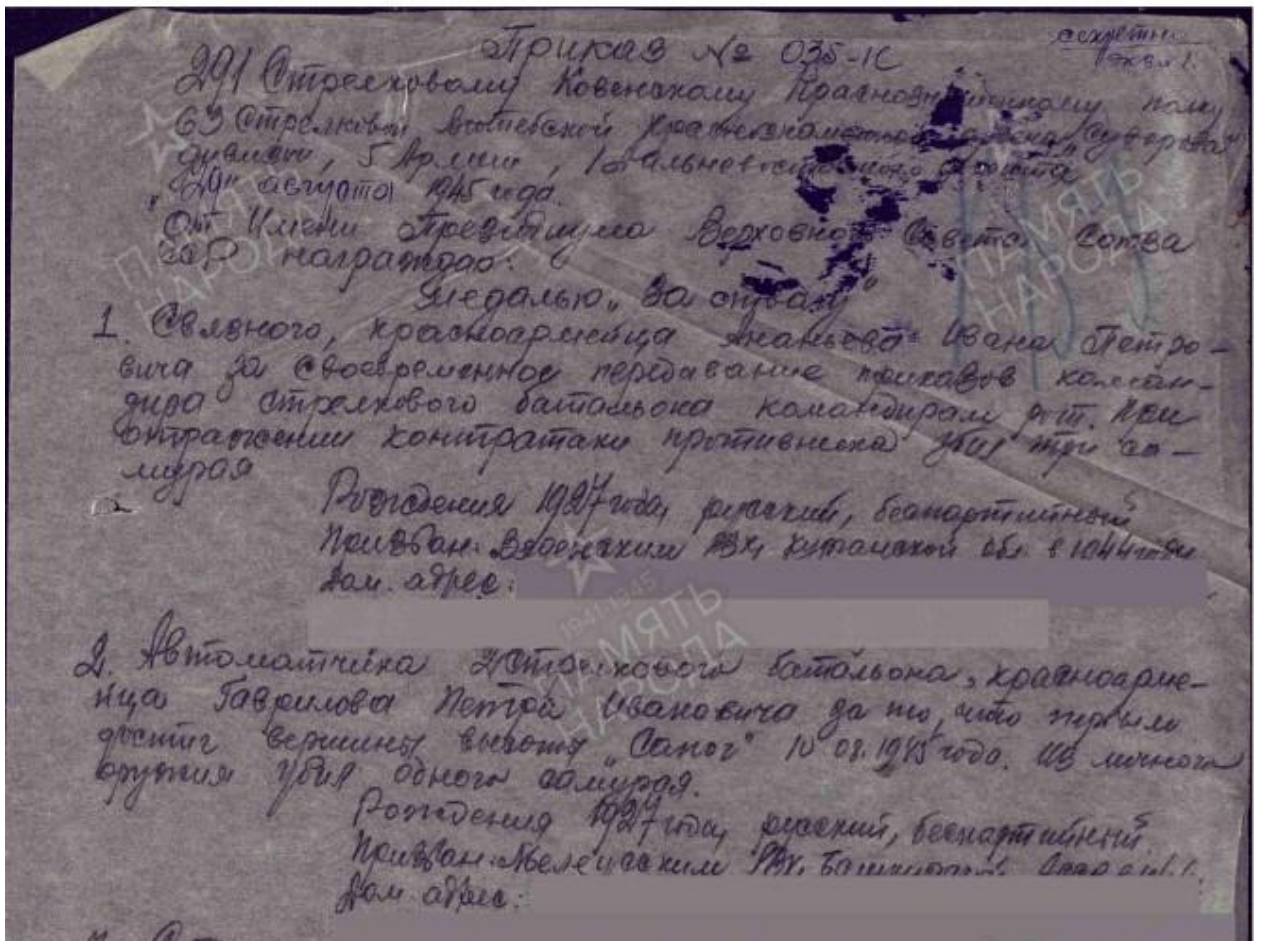 Приказ № 035-1С
секретно
экз. 1.
291 Стрелковому Ковенскому Краснознаменному полку
63 Стрелковой Витебской Краснознаменной ордена "Суворова"
дивизии, 5 Армии, 1 Дальневосточного фронта
"29" августа 1945 года.
От Имени Президиума Верховного Совета Союза
ССР награждаю:
Медалью "За отвагу"
1. Связного, красноармейца Ананьева Ивана Петро-
вича за своевременное передавание приказов коман-
дира стрелкового батальона командирам рот. При
отражении контратаки противника убил три са-
мурая
Рождения 1927 года, русский, беспартийный
Призван РВК, обл. в 1944 году
Дом. адрес:
2. Автоматчика стрелкового батальона, красноарме-
йца Гаврилова Петра Ивановича за то, что первым
достиг вершины высоты "Сапог" 10 08.1945 года. Из личного
оружия убил одного самурая.
Рождения 1927 года, русский, беспартийный.
Призван РВК,
Дом. адрес:
ПАМЯТЬ
НАРОДА
ПАМЯТЬ
НАРОДА
1941-1945
ПАМЯТЬ
НАРОДА